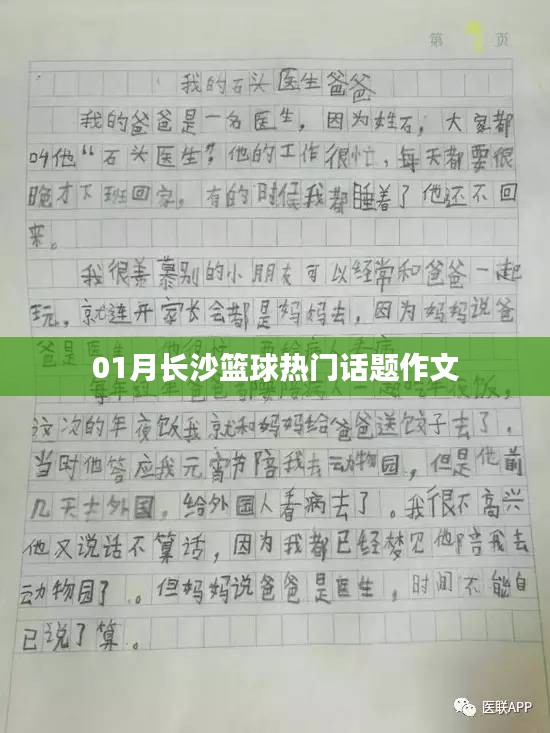 第 页
我的石头医生爸爸
我的爸爸是一名医生，因为姓石，大家都
叫他“石头医生”。他的工作很忙，每天都要很
晚才下班回家。有的时候我都睡着了他还不回
来。
我很羡慕别的小朋友可以经常和爸爸一起
玩，就连开家长会都是妈妈去，因为妈妈说爸
爸是医生
01月长沙篮球热门话题作文
年夜饭，
这次的年夜饭我就和妈妈给爸爸送饺子去了。
当时他答应我元宵节陪我去动物园，但是他前
几天去外国，给外国人看病去了。我很不高兴
他又说话不算话，因为我都已经梦见他陪我去
动物园了。但妈妈说爸爸是医生，时间不能自
己说了算。
医联APP